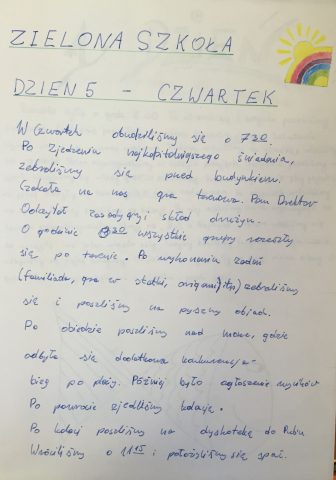 ZIELONA SZKOŁA
DZIEŃ 5 - CZWARTEK
W czwartek obudziliśmy się o 7:30.
Po zjedzeniu najkapitalniejszego śniadania,
zebraliśmy się przed budynkiem.
Czekała na nas gra terenowa. Pan Dyrektor
Odczytał zasady gry i skład drużyn.
O godzinie 9:30 wszystkie grupy rozeszły
się po terenie. Po wykonaniu zadań
(familiada, gra w statki, origami, itp) zebraliśmy
się i poszliśmy na pyszny obiad.
Po obiedzie poszliśmy nad morze, gdzie
odbyła się dodatkowa konkurencja -
bieg po plaży. Później było ogłoszenie wyników
Po powrocie zjedliśmy kolację.
Po kolacji poszliśmy na dyskotekę do Pubu
Wróciliśmy o 11:15 i położyliśmy się spać.